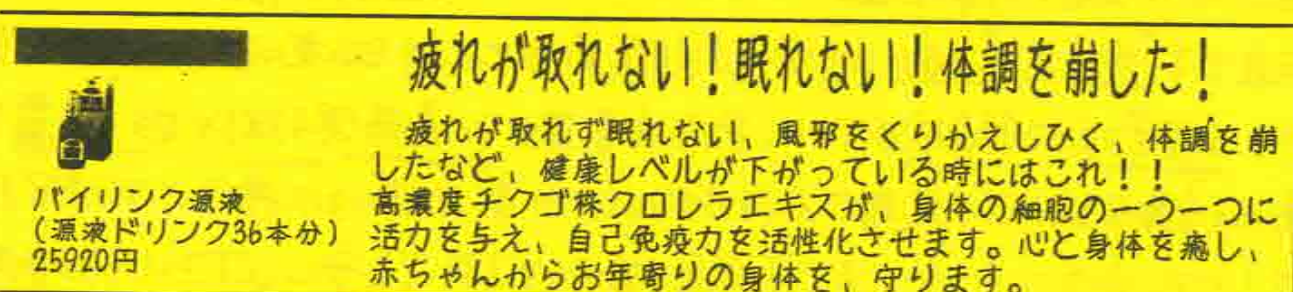 疲れが取れない！眠れない！体調を崩した！
疲れが取れず眠れない、風邪をくりかえしひく、体調を崩
したなど、健康レベルが下がっている時にはこれ！！
高濃度チクゴ株クロレラエキスが、身体の細胞の一つ一つに
活力を与え、自己免疫力を活性化させます。心と身体を癒し、
赤ちゃんからお年寄りの身体を、守ります。
バイリンク源液
（源液ドリンク36本分）
25920円